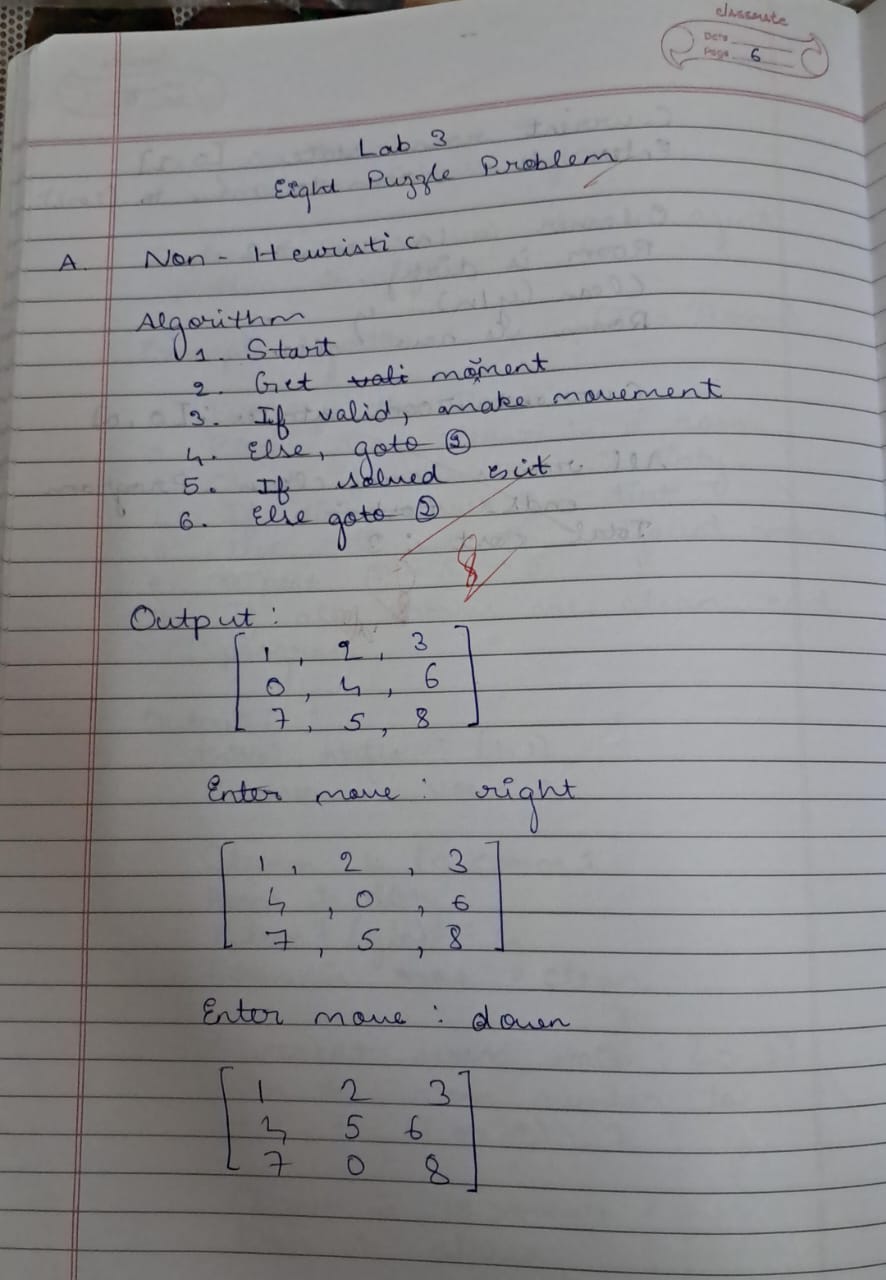 classmate
Date
Page 6
Lab 3
Eight Puzzle Problem
A. Non-Heuristic
Algorithm
1. Start
2. Get vali moment
3. If valid, make movement
4. Else, goto ②
5. If solved exit
6. Else goto ②
8
Output :
1, 2, 3
0, 4, 6
7, 5, 8
Enter move : right
1, 2, 3
4, 0, 6
7, 5, 8
Enter move : down
1 2 3
4 5 6
7 0 8